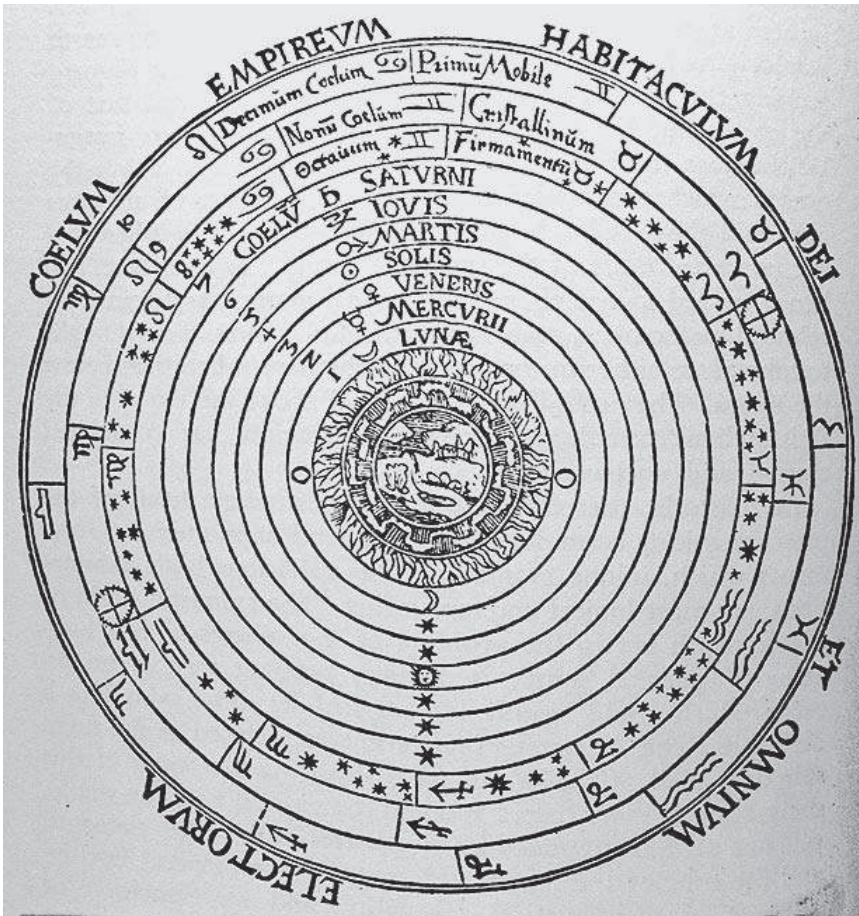 COELVM EMPIREVM HABITACVLVM DEI ET OMNIVM ELECTORVM
Decimum Coelum ♋ Primũ Mobile ♊
Nonũ Coelum ♊ Cristallinum ♉
Octauum ♊ Firmamentũ ♉
8
9
7 COELV̄ ♄ SATVRNI
6 ♃ IOVIS
5 ♂ MARTIS
4 ☉ SOLIS
3 ♀ VENERIS
2 ☿ MERCVRII
1 ☽ LVNÆ